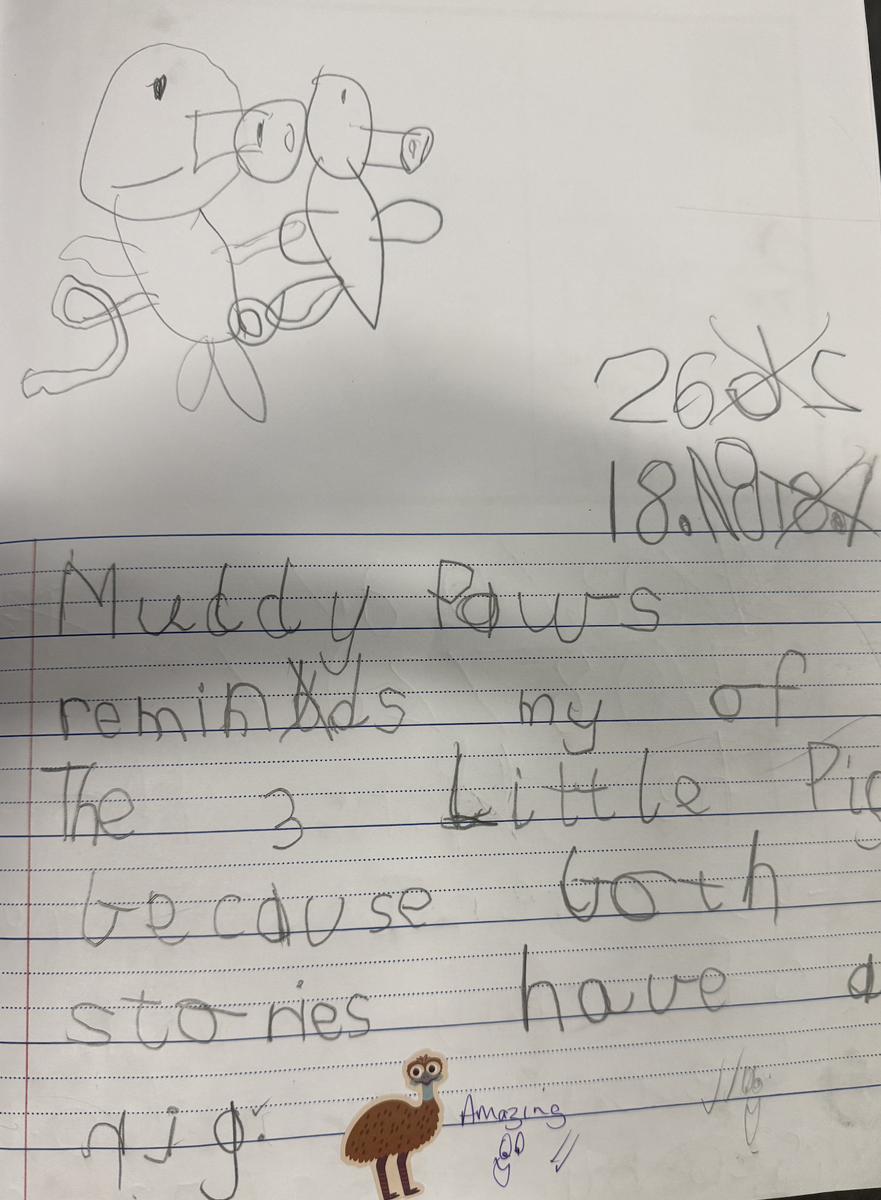 26
18.
Muddy Paws
reminds my of
The 3 Little Pig
because both
stories have a
pig.
Amazing